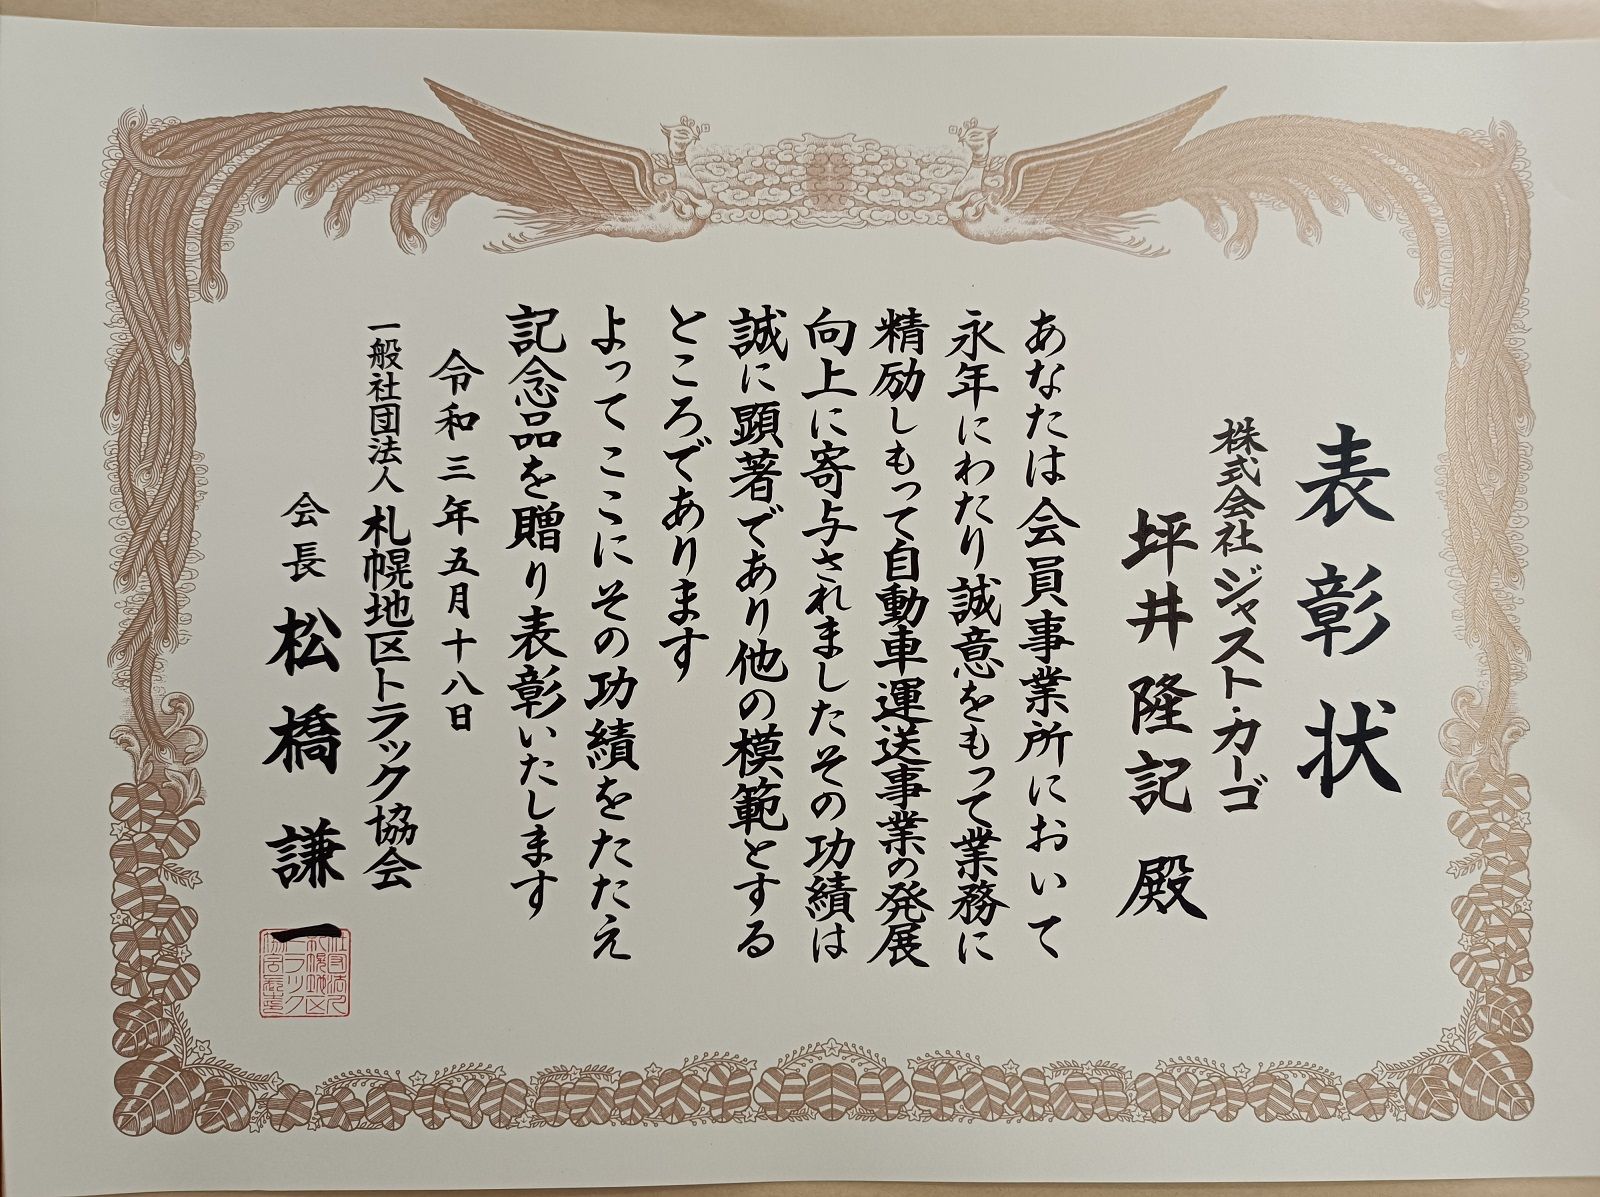 表彰状
株式会社ジャスト・カーゴ
坪井隆記殿
あなたは会員事業所において
永年にわたり誠意をもって業務に
精励しもって自動車運送事業の発展
向上に寄与されましたその功績は
誠に顕著であり他の模範とする
ところであります
よってここにその功績をたたえ
記念品を贈り表彰いたします
令和三年五月十八日
一般社団法人札幌地区トラック協会
会長 松橋謙一